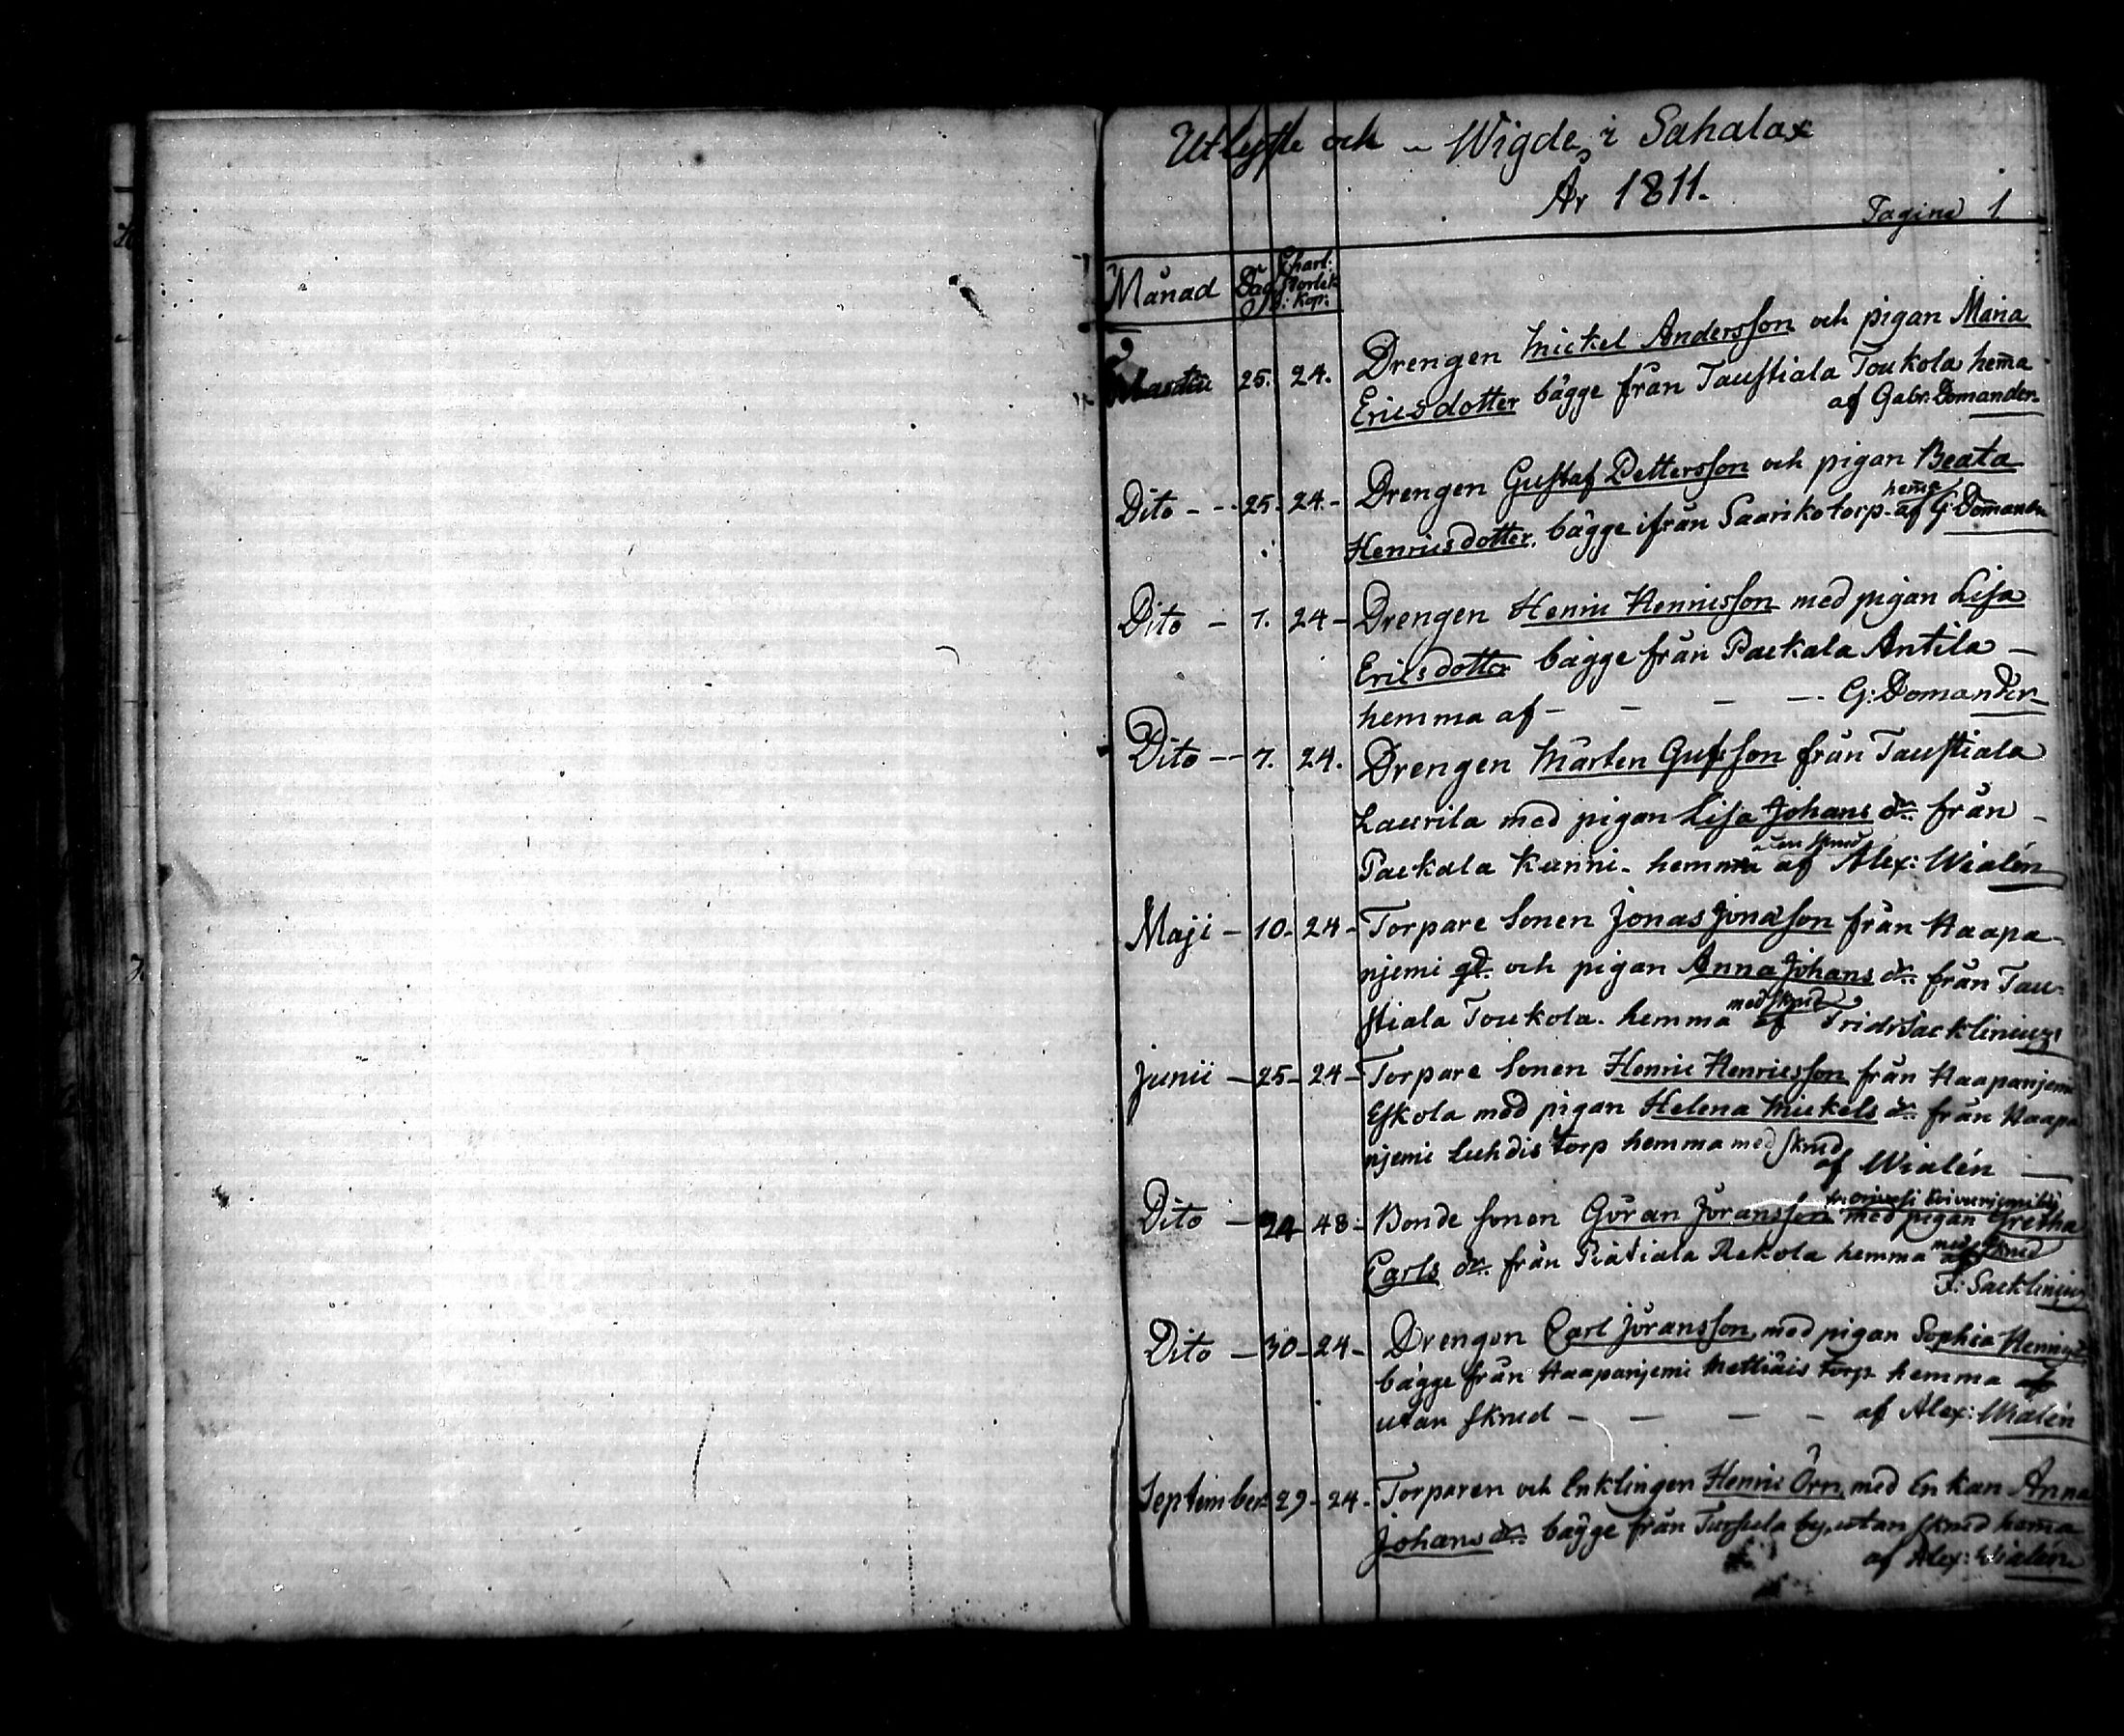 Utlyste och - Wigde, i Sahalax
År 1811.
Pagina 1
Månad Dag Charl: Storlek: Kop:
25. 24. Drengen Mickel Andersson och pigan Maria
Ericsdotter bägge från Taustiala Toukola hema
af Gabr: Domander.
Dito - - 25. 24. - Drengen Gustaf Pettersson och pigan Beata
Henricsdotter. bägge ifrån Saariko torp. hema af G: Domander
Dito - 7. 24 - Drengen Henric Henricsson med pigan Lisa
Ericsdotter bägge från Paekala Antila -
hemma af - - - - G: Domander
Dito - - 7. 24. Drengen Mårten Gufsson från Taustiala
Laurila med pigan Lisa Johans dr. från -
Paekala Kunni. hemma utan skrud af Alex: Wialén
Maji - 10 - 24 - Torpare Sonen Jonas Jonasson från Haapa-
njemi gd. och pigan Anna Johans dr. från Tau-
stiala Toukola. hemma med skrud af Fridr: Sacklinius
Junii - 25 - 24 - Torpare Sonen Henric Henricsson från Haapanjemi
Eskola med pigan Helena Mickels dr. från Haapa
njemi Luhdis torp hemma med skrud
af Wialén -
Dito - 24 - 48 - Bonde sonen Göran Jöransson med pigan Gretha
Carls dr. från Piätiala Rekola hemma med skrud af
F: Sacklinius
Dito - 30 - 24 - Drengen Carl Jöransson, med pigan Sophia Henricsd.
bägge från Haapanjemi Mattiais torp hemma af
utan skrud - - - - af Alex: Wialén
September 29 - 24 - Torparen och Enklingen Henric Örn, med Enkan Anna
Johans dr. bägge från Tursula by, utan skrud hema
af Alex: Wialén